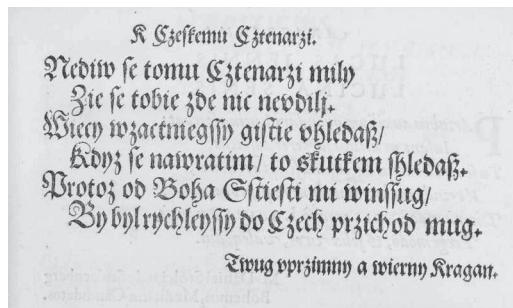 K Czeskemu Cztenarzi.
Nediw se tomu Cztenarzi mily
Zie se tobie zde nic nevdilj.
Wiecy wzactniegssy gistie vhledaß/
Kdyz se nawratim/ to skutkem shledaß.
Protoz od Boha Sstiesti mi winssug/
By byl rychleyssy do Czech przichod mug.
Twug vprzimny a wierny Kragan.